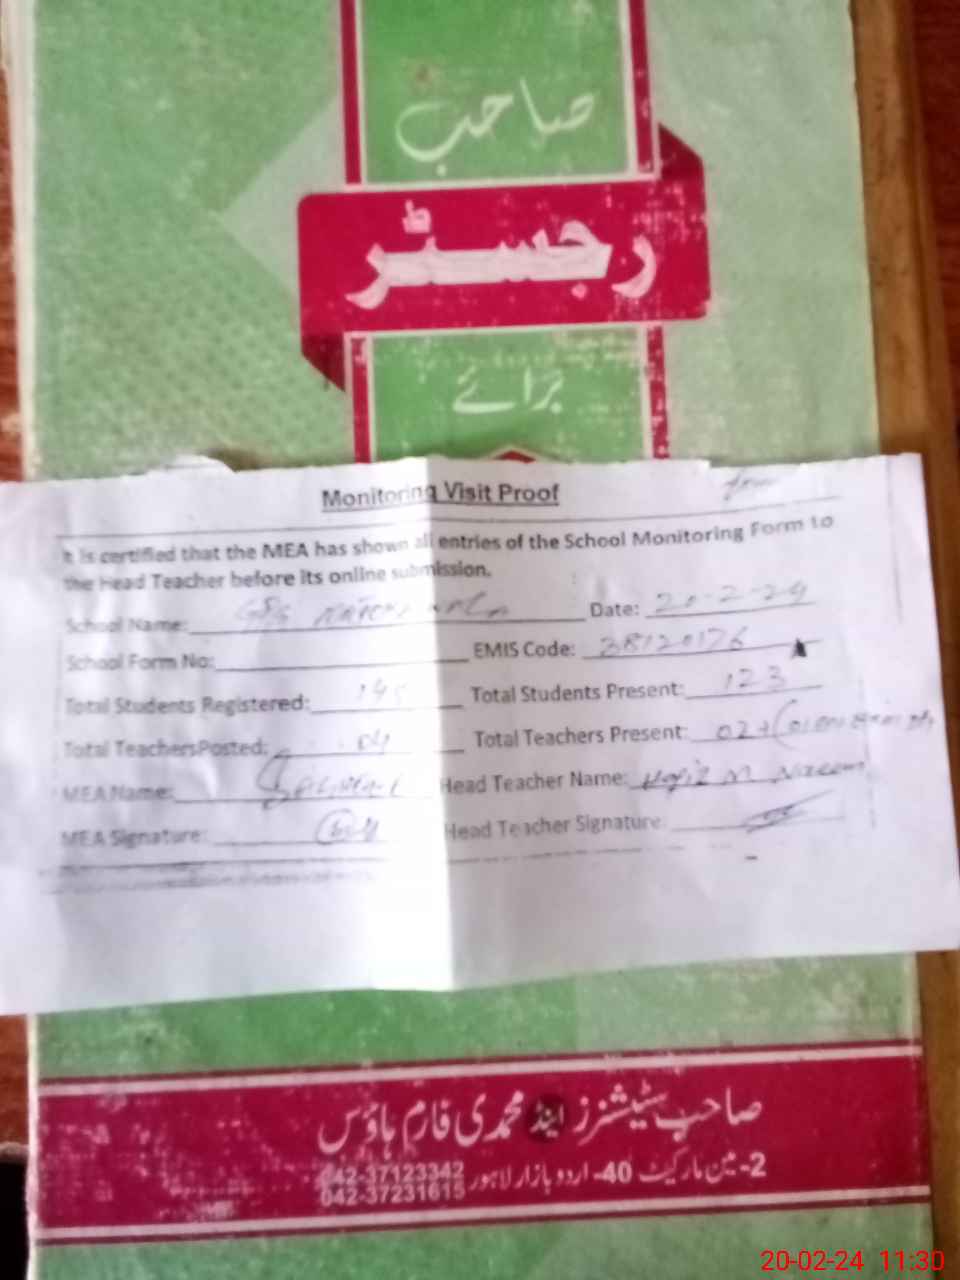 صاحب
رجسٹر
برائے
Monitoring Visit Proof
It is certified that the MEA has shown all entries of the School Monitoring Form to
the Head Teacher before its online submission.
School Name: Date: 20-2-24
School Form No: EMIS Code: 38120176
Total Students Registered: Total Students Present: 123
Total TeachersPosted: 04 Total Teachers Present: 02+
MEA Name: Head Teacher Name: Hafiz M Naeem
MEA Signature: Head Teacher Signature:
صاحب سٹیشنرز اینڈ محمدی فارم ہاؤس
2-مین مارکیٹ 40-اردو بازار لاہور 042-37123342
042-37231615
20-02-24 11:30